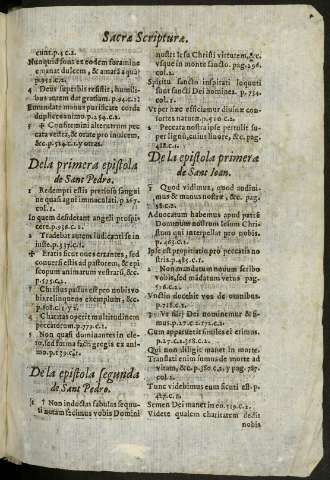 Sacræ Scripturæ.
cunt. p. 4 c. 2.
Nunquid fons ex eodem foramine
emanat dulcem, & amarã aquã
p. 252. c. 2.
4 Deus superbis resistit, humili-
bus autem dat gratiam. p. 94. c. 2
Emundate manus purificate corda
duplices animo. p. 254. c. 2.
5 Confitemini alterutrum pec
cata vestra, & orate pro inuicem,
&c. p. 524. c. 1. y otras.
De la primera epistola
de Sant Pedro.
1 Redempti estis pretioso sangui
ne quasi agni immaculati. p. 167.
col. 1.
In quem desiderant angeli prospi-
cere. p. 938. c. 1.
2 Tradebat autem iudicanti se in
iuste. p. 537. c. 1.
Eratis sicut oues errantes, sed
conuersi estis ad pastorem, & epi
scopum animarum vestrarũ, &c.
p. 575. c. 2.
Christus passus est pro nobis vo
bis relinquens exemplum, &c.
4 Charitas operit multitudinem
peccatorum. p. 772. c. 1.
5 Non quasi dominantes in cle-
ro, sed forma facti gregis ex ani
mo. p. 579. c. 1.
De la epistola segunda
de Sant Pedro.
1 Non indoctas fabulas sequu-
ti notam fecimus vobis Domini
nostri Iesu Christi virtutem, &c.
vsque in monte sancto. pag. 296.
col. 1.
Spiritu sancto inspirati loquuti
sunt sancti Dei homines. p. 734.
col. 1.
Vt per hæc efficiamur diuinæ con-
sortes naturæ. p. 910. c. 2.
2 Peccata nostra ipse pertulit su-
per lignũ, cuius liuore, &c. pag.
488. c. 1.
De la epistola primera
de Sant Ioan.
1 Quod vidimus, quod audiui-
mus, & manus nostræ, &c. pag.
Aduocatum habemus apud patrẽ
Dominum nostrum Iesum Chri-
stum qui interpellat pro nobis.
p. 465. c. 1.
Ipse est propitiatio pro peccatis no
stris. p. 485. c. 1.
2 Non mandatum nouum scribo
vobis, sed mãdatum vetus. pag
516. c. 2.
Vnctio docebit vos de omnibus.
p. 718. c. 2.
3 Vt filij Dei nominemur & si-
mus. p. 27. c. 2. 173. c. 2.
Cum apparuerit similes ei erimus.
p. 27. c. 2. 258. c. 2.
Qui non diligit manet in morte.
Translati enim sumus de morte ad
vitam, &c. p. 380. c. 2. y pag. 787.
col. 1.
Tunc videbimus eum sicuti est. p.
427. c. 2.
Semen Dei manet in eo. 519. c. 2.
Videte qualem charitatem dedit
nobis